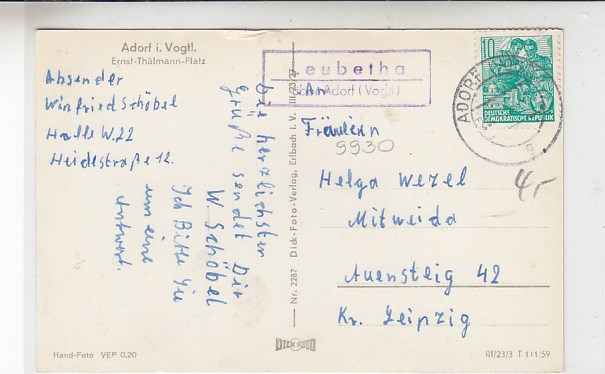 Adorf i. Vogtl.
Ernst-Thälmann-Platz
Absender
Winfried Schöbel
Halle W.22
Heidestraße 12.
Die herzlichsten
Grüße sendet Dir
W. Schöbel
Ich Bitte Sie
um eine
Antwort.
Nr. 2287 Dick-Foto-Verlag, Erlbach i. V. III/23/21
Leubetha
über Adorf (Vogtl)
10
DEUTSCHE
DEMOKRATISCHE REPUBLIK
ADORF
g
An
Fräulein
9930
Helga Wezel
Mitweida
Auensteig 42
Kr. Leipzig
4,-
Hand-Foto VEP 0,20
DICK
III/23/3 T 111/59